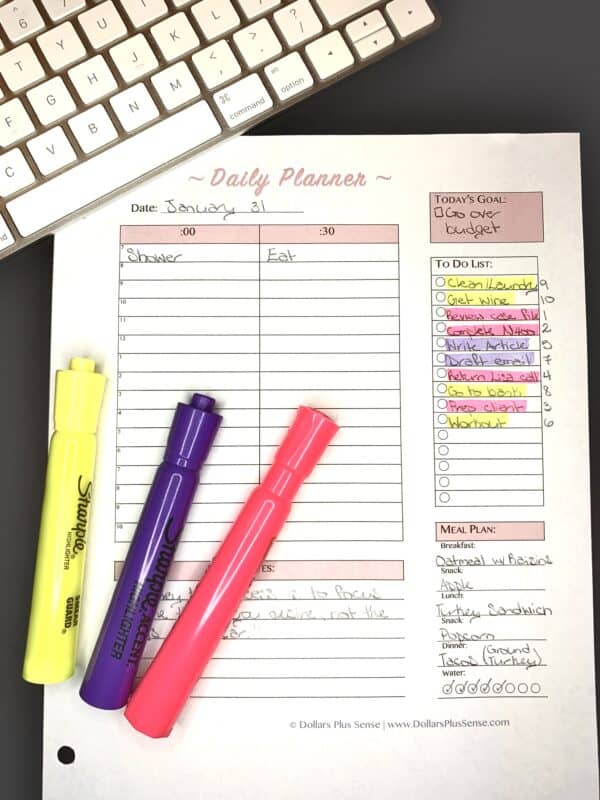 ^
6
T
Y
U
I
O
P
F
G
H
J
K
L
:
;
"
'
C
V
B
N
M
<
,
>
.
?
/
⌘
command
alt
option
~ Daily Planner ~
Date: January 31
:00 :30
7 Shower Eat
8
9
10
11
12
1
2
3
4
5
6
7
8
9
10
TODAY'S GOAL:
Go over
budget
TO DO LIST:
Clean/Laundry 9
Get wine 10
Review case file 1
Complete N400 2
Write Article 5
Draft email 7
Return Lisa call 4
Go to bank 8
Prep client 3
Workout 6
MEAL PLAN:
Breakfast:
Oatmeal w/ Raisins
Snack:
Apple
Lunch:
Turkey Sandwich
Snack:
Popcorn
Dinner:
Tacos (Ground
Turkey)
Water:
is to focus
desire, not the
Sharpie
HIGHLIGHTER
SMEAR
GUARD
Sharpie ACCENT
HIGHLIGHTER
© Dollars Plus Sense | www.DollarsPlusSense.com